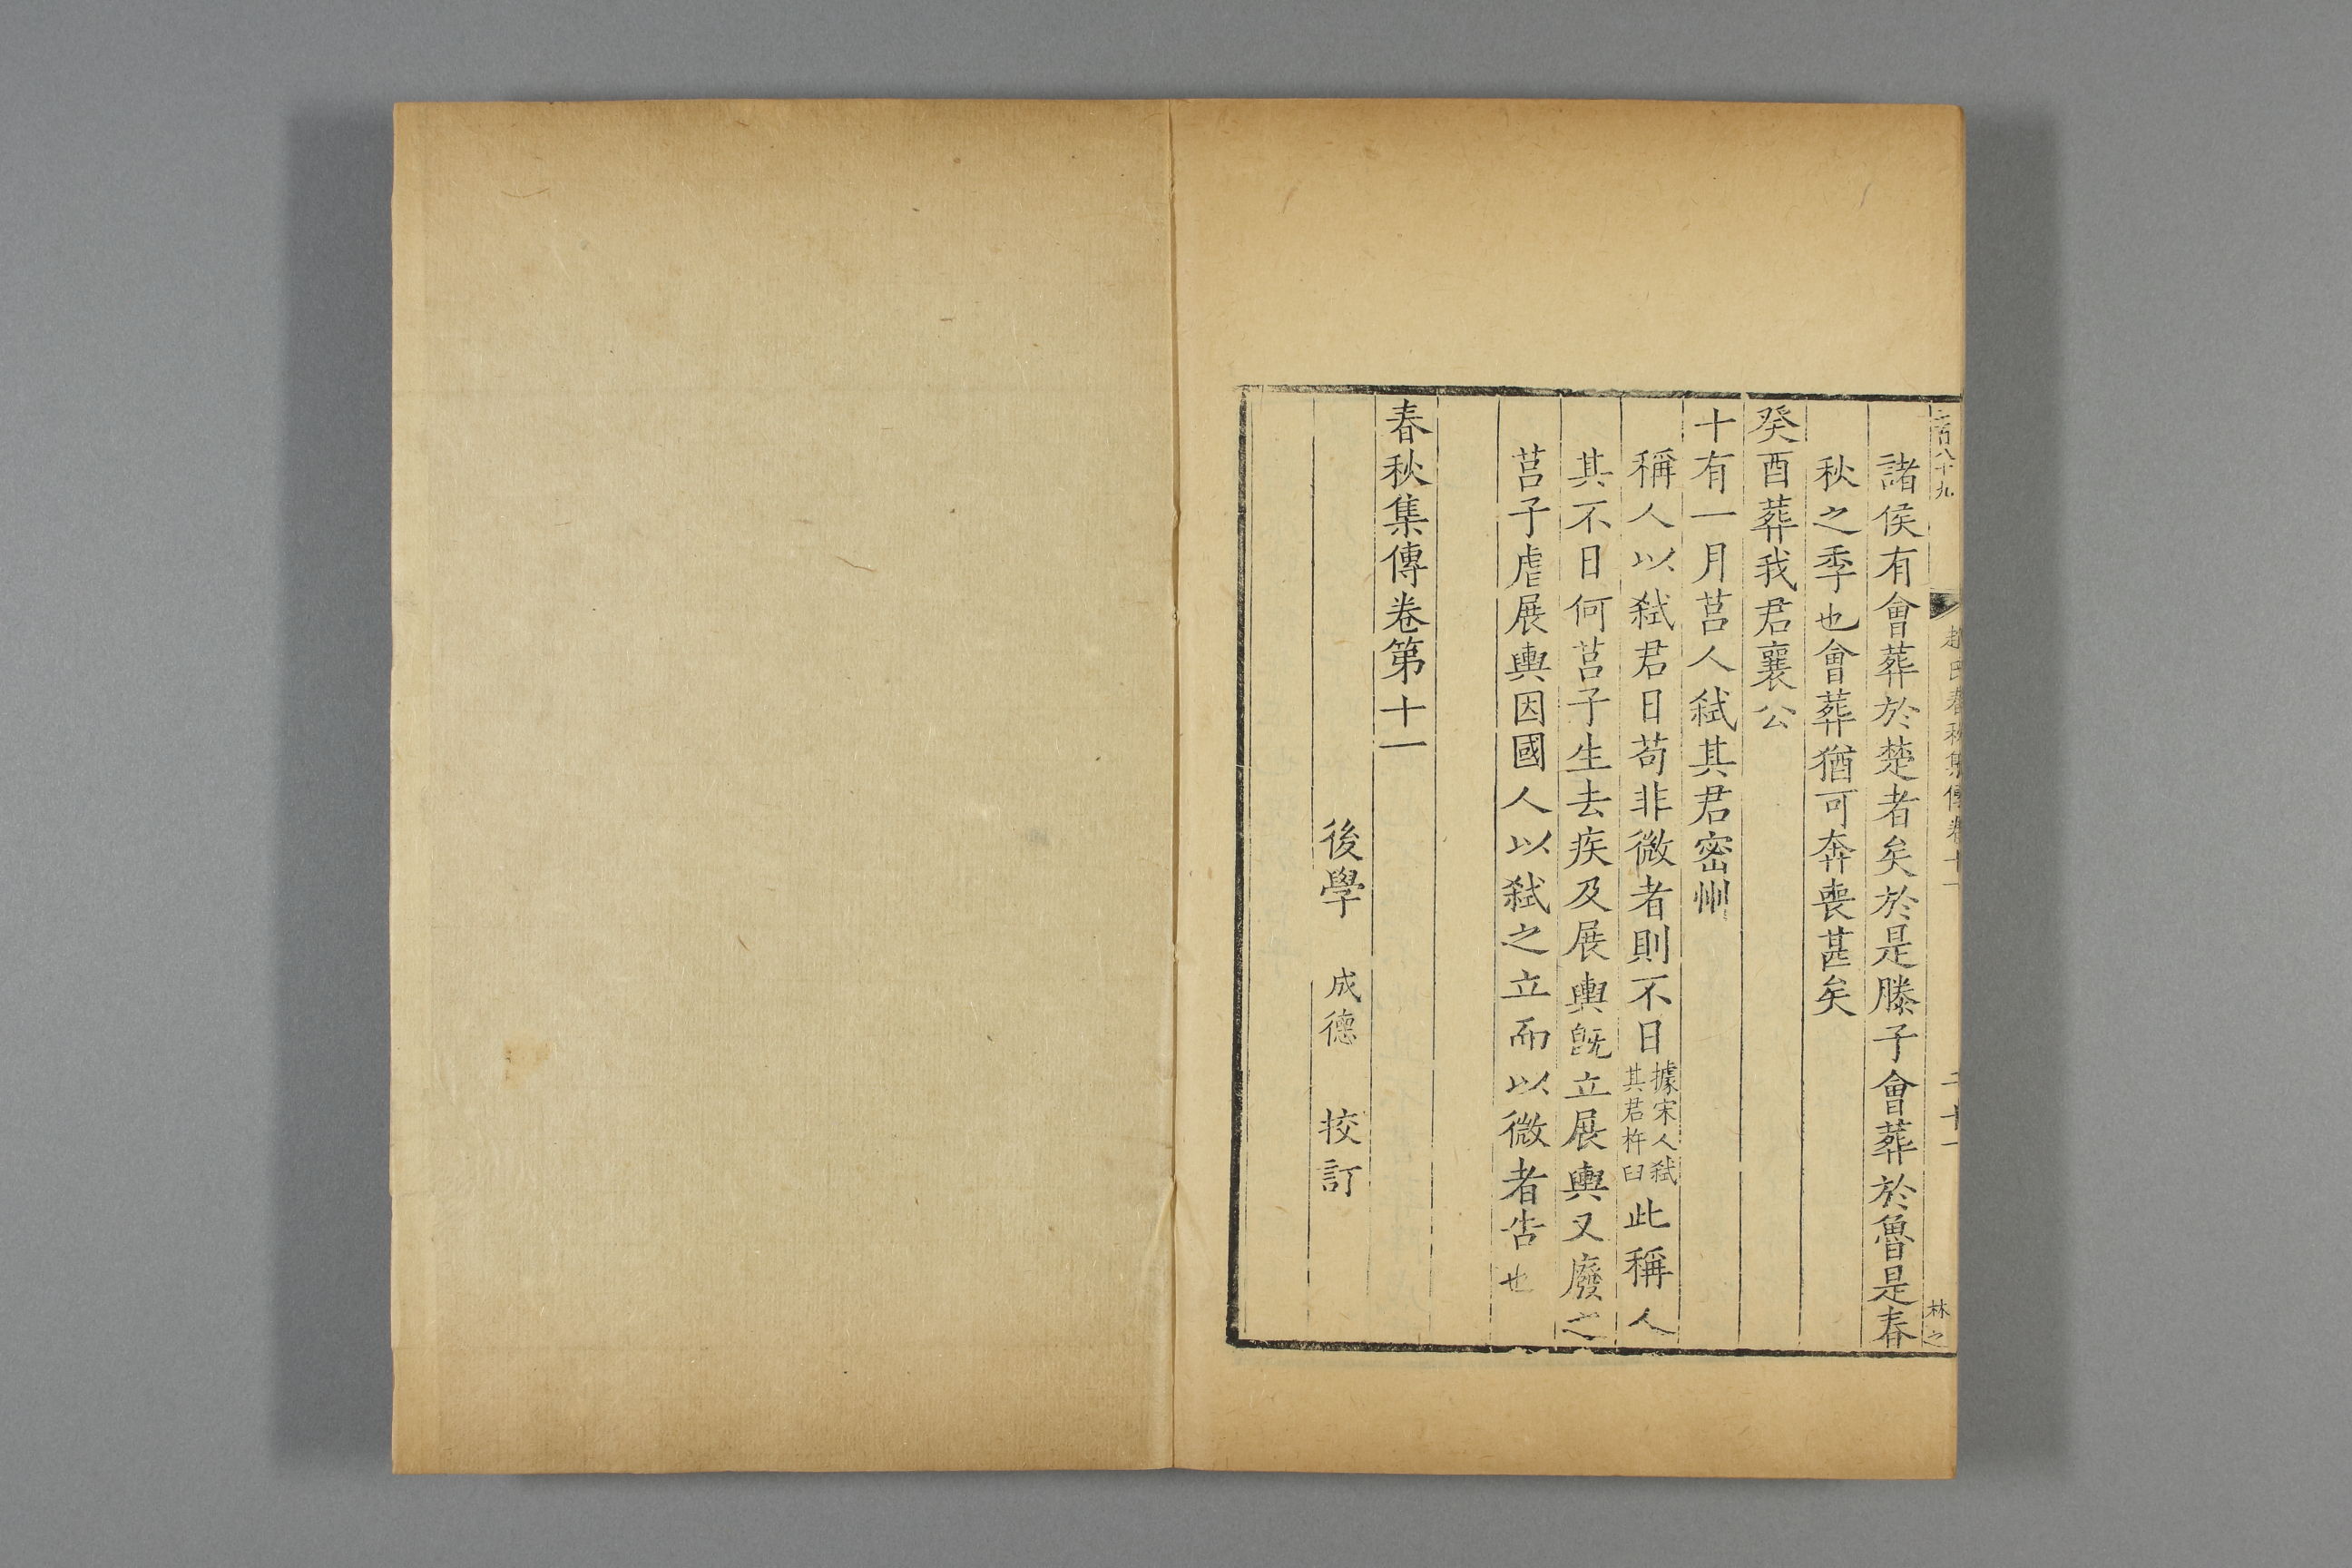 趙氏春秋集傳卷十一 二十一 林之
諸侯有會葬於楚者矣於是滕子會葬於魯是春
秋之季也會葬猶可奔喪甚矣
癸酉葬我君襄公
十有一月莒人弑其君密州
稱人以弑君日苟非微者則不日據宋人弑其君杵臼此稱人
其不日何莒子生去疾及展輿旣立展輿又廢之
莒子虐展輿因國人以弑之立而以微者告也
春秋集傳卷第十一
後學 成德 挍訂